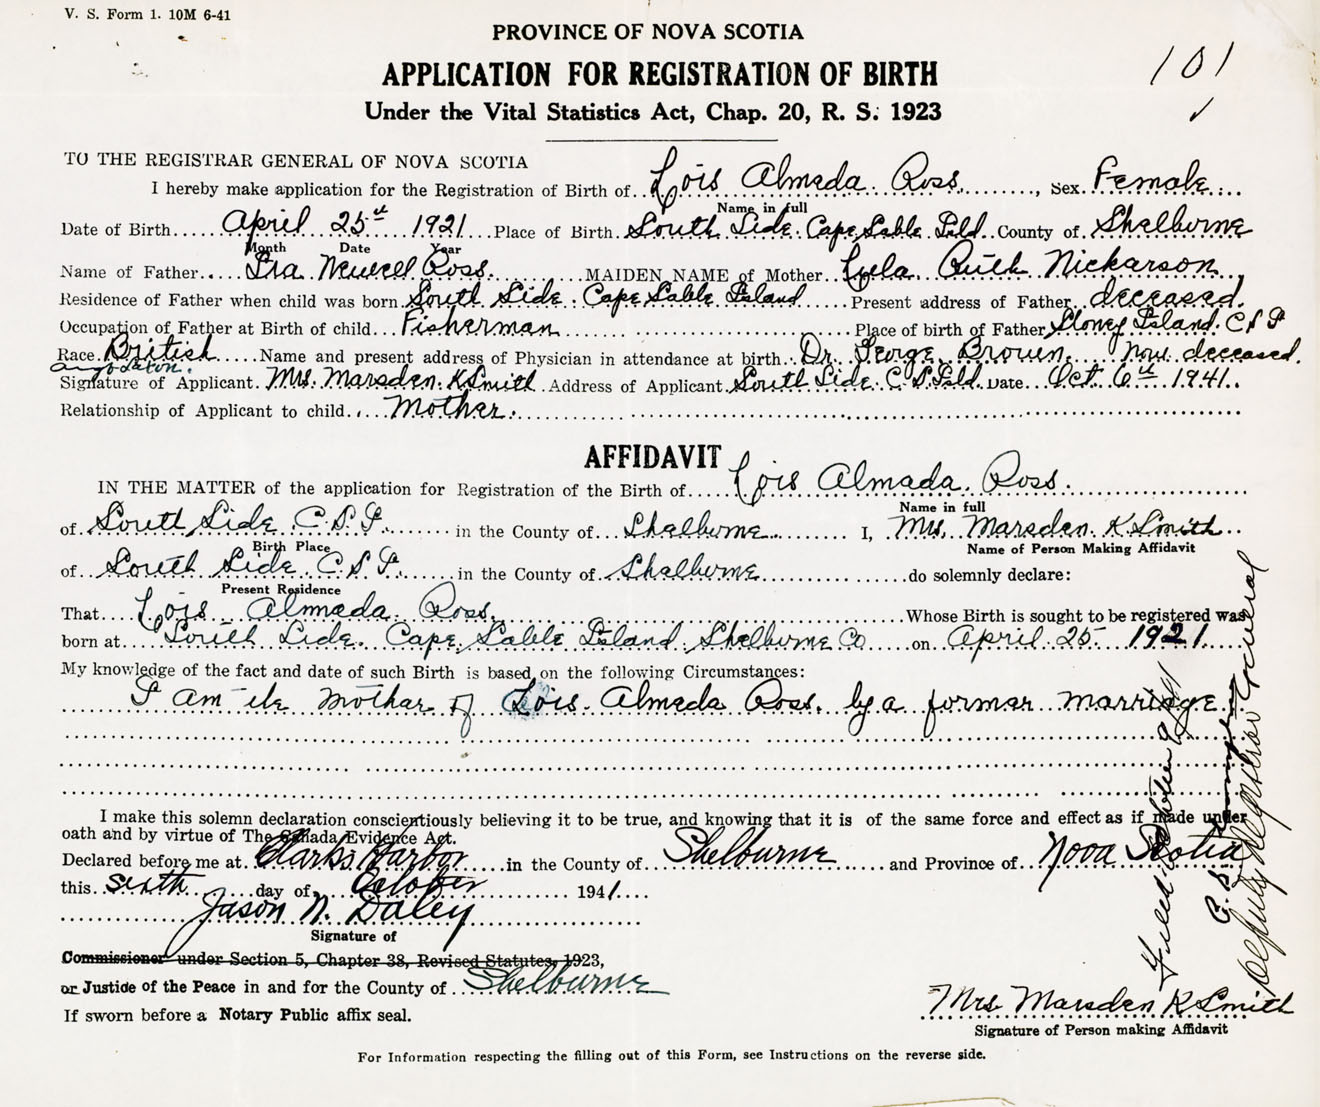 V. S. Form 1. 10M 6-41
PROVINCE OF NOVA SCOTIA
101
APPLICATION FOR REGISTRATION OF BIRTH
Under the Vital Statistics Act, Chap. 20, R. S. 1923
TO THE REGISTRAR GENERAL OF NOVA SCOTIA
I hereby make application for the Registration of Birth of Lois Almeda Ross, Sex Female
Name in full
Date of Birth April 25th 1921 Place of Birth South Side Cape Sable Isld County of Shelburne
Month Date Year
Name of Father Ira Newell Ross MAIDEN NAME of Mother Lula Ruth Nickarson,
Residence of Father when child was born South Side Cape Sable Island Present address of Father deceased.
Occupation of Father at Birth of child Fisherman Place of birth of Father Stoney Island. C S I
Race British Name and present address of Physician in attendance at birth Dr. George Brown. now deceased.
Anglo Saxon.
Signature of Applicant Mrs. Marsden K Smith Address of Applicant South Side C. S. Isld. Date Oct. 6th 1941.
Relationship of Applicant to child Mother.
AFFIDAVIT
IN THE MATTER of the application for Registration of the Birth of Lois Almada Ross.
Name in full
of South Side C. S. I. in the County of Shelburne I, Mrs. Marsden K Smith
Birth Place Name of Person Making Affidavit
of South Side C. S. I. in the County of Shelburne do solemnly declare:
Present Residence
That Lois Almada Ross. Whose Birth is sought to be registered was
born at South Side. Cape Sable Island Shelburne Co on April 25 1921
My knowledge of the fact and date of such Birth is based on the following Circumstances:
I am the Mother of Lois Almeda Ross. by a former marriage
I make this solemn declaration conscientiously believing it to be true, and knowing that it is of the same force and effect as if made under
oath and by virtue of The Canada Evidence Act.
Declared before me at Clarks Harbor in the County of Shelburne and Province of Nova Scotia
this sixth day of October 1941
Jason N. Daley
Signature of
Commissioner under Section 5, Chapter 38, Revised Statutes, 1923,
or Justice of the Peace in and for the County of Shelburne
If sworn before a Notary Public affix seal.
Mrs Marsden K Smith
Signature of Person making Affidavit
For Information respecting the filling out of this Form, see Instructions on the reverse side.
Filed October
Deputy Registrar General